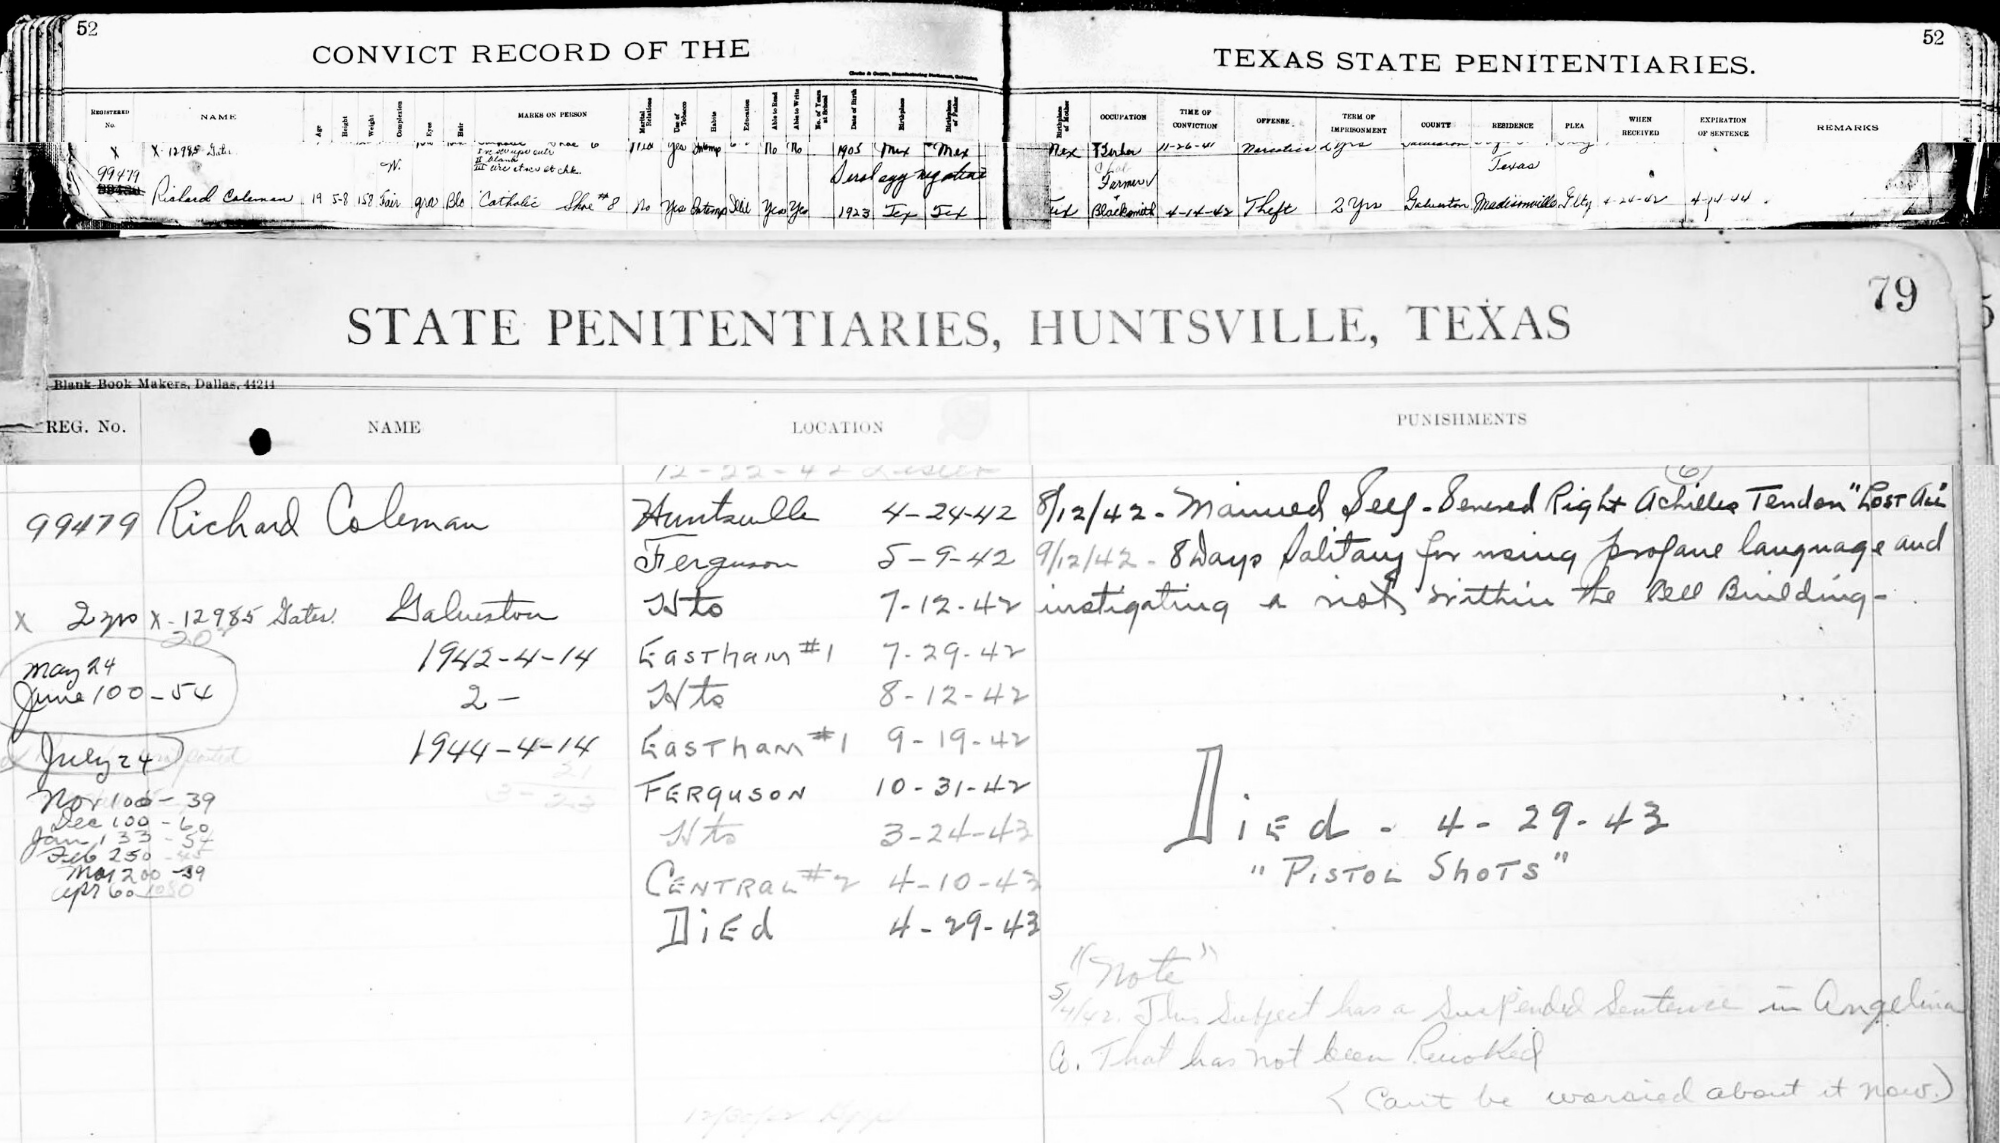 52
CONVICT RECORD OF THE
TEXAS STATE PENITENTIARIES.
52
REGISTERED No. NAME Age Height Weight Complexion Eyes Hair MARKS ON PERSON Marital Relations Use of Tobacco Habits Education Able to Read Able to Write No. of Years at School Date of Birth Birthplace Birthplace of Father
Birthplace of Mother OCCUPATION TIME OF CONVICTION OFFENSE TERM OF IMPRISONMENT COUNTY RESIDENCE PLEA WHEN RECEIVED EXPIRATION OF SENTENCE REMARKS
X X-12985 Gates Yes No No 1905 Mex Mex Mex 11-26-41 Narcotics 2 yrs
99479 W. Serology negative Texas
Farmer
Richard Coleman 19 5-8 158 Fair gra Blo Catholic Shoe #8 No Yes Intemp Yes Yes 1923 Tex Tex Tex Blacksmith 4-14-42 Theft 2 Yrs Galveston Madisonville Glty 4-24-42 4-14-44
79
STATE PENITENTIARIES, HUNTSVILLE, TEXAS
Blank Book Makers, Dallas, 44214
REG. No. NAME LOCATION PUNISHMENTS
12-22-42
99479 Richard Coleman Huntsville 4-24-42 8/12/42 - Maimed Self - Severed Right Achilles Tendon "Lost All" (6)
Ferguson 5-9-42 9/12/42 - 8 Days Solitary for using profane language and
X 2 yrs X-12985 Gates. Galveston Hts 7-12-42 instigating a riot within the Cell Building-
20
May 24 1942-4-14 Eastham #1 7-29-42
June 100-54 2- Hts 8-12-42
July 24 1944-4-14 Eastham #1 9-19-42
Nov 100-39 Ferguson 10-31-42
Dec 100-60
Jan 133-54 Hts 3-24-43
Feb 250-45
Mar 200-39 Central #2 4-10-43
Apr 60
Died 4-29-43
Died - 4-29-43
"Pistol Shots"
"Note"
5/4/42. This Subject has a Suspended Sentence in Angelina
Co. That has not been Revoked
(Can't be worried about it now.)